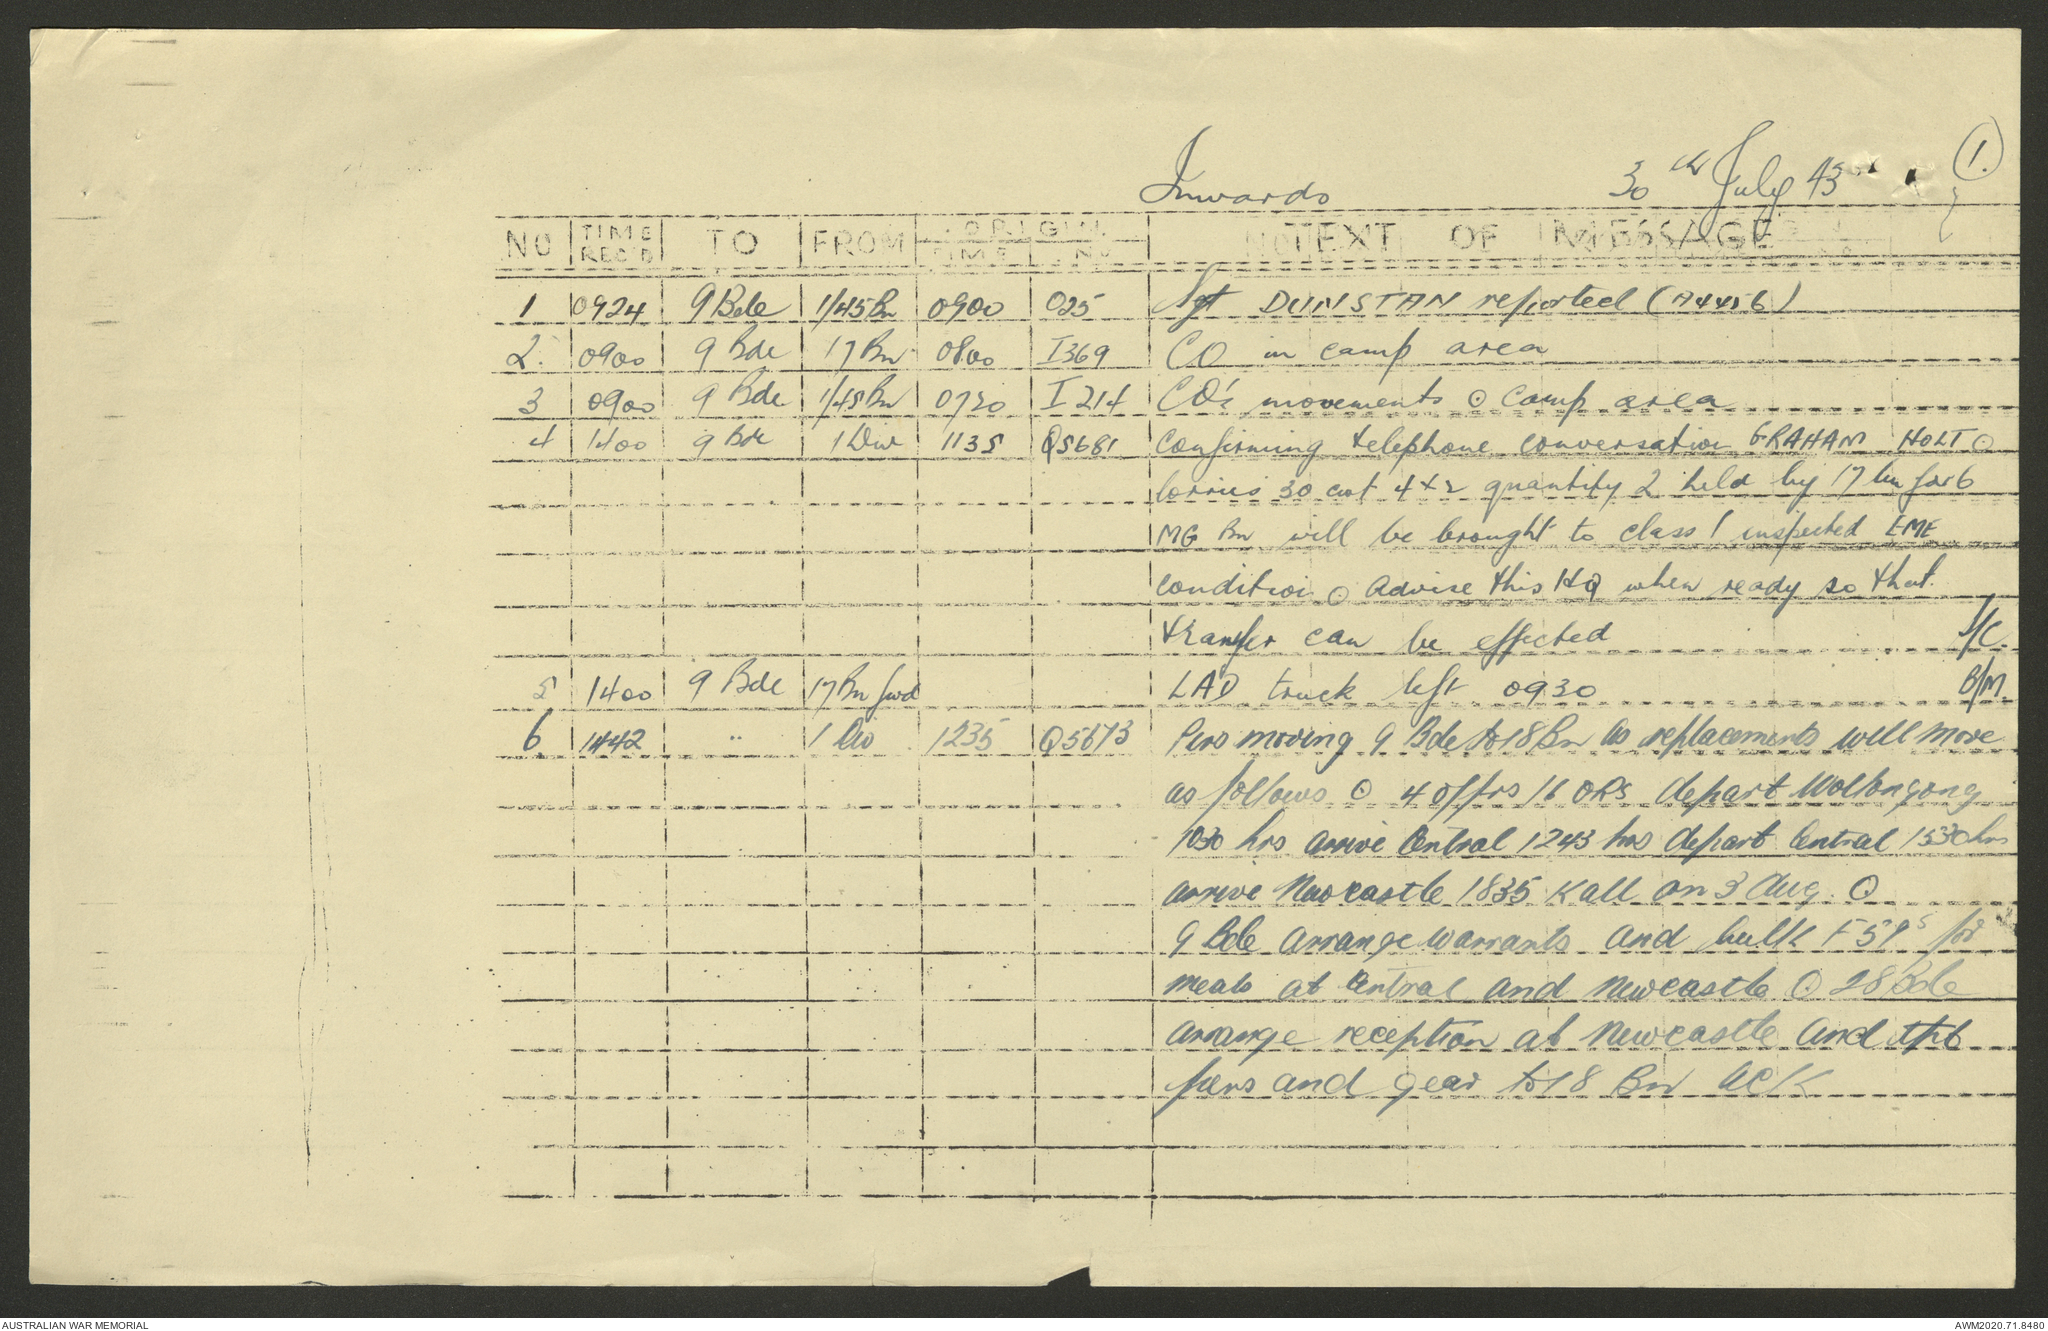 1.
Inwards 30th July 43
NO TIME REC'D TO FROM ORIGIN TIME NO TEXT OF MESSAGE
1 0924 9 Bde 1/45 Bn 0900 O25 Sgt DUNSTAN reported (A4456)
2. 0900 9 Bde 17 Bn 0800 I369 CO in camp area
3 0900 9 Bde 1/45 Bn 0730 I 214 CO's movements ⊙ Camp area
4 1400 9 Bde 1 Div 1135 Q5681 Confirming telephone conversation GRAHAM HOLT ⊙
lorries 30 cwt 4x2 quantity 2 held by 17 Bn for 6
MG Bn will be brought to class 1 inspected EME
condition ⊙ Advise this HQ when ready so that
transfer can be effected S/C.
5 1400 9 Bde 17 Bn fwd LAD truck left 0930 B/M.
6 1442 " 1 Div 1235 Q5673 Pers moving 9 Bde to 18 Bn as replacements will move
as follows ⊙ 4 offrs 16 ORs depart Wollongong
1030 hrs arrive Central 1243 hrs depart Central 1530 hrs
arrive Newcastle 1835 K all on 3 Aug ⊙
9 Bde arrange warrants and bulk F59s for
meals at Central and Newcastle ⊙ 28 Bde
arrange reception at Newcastle and tpt
pers and gear to 18 Bn ACK
AUSTRALIAN WAR MEMORIAL
AWM2020.71.8480